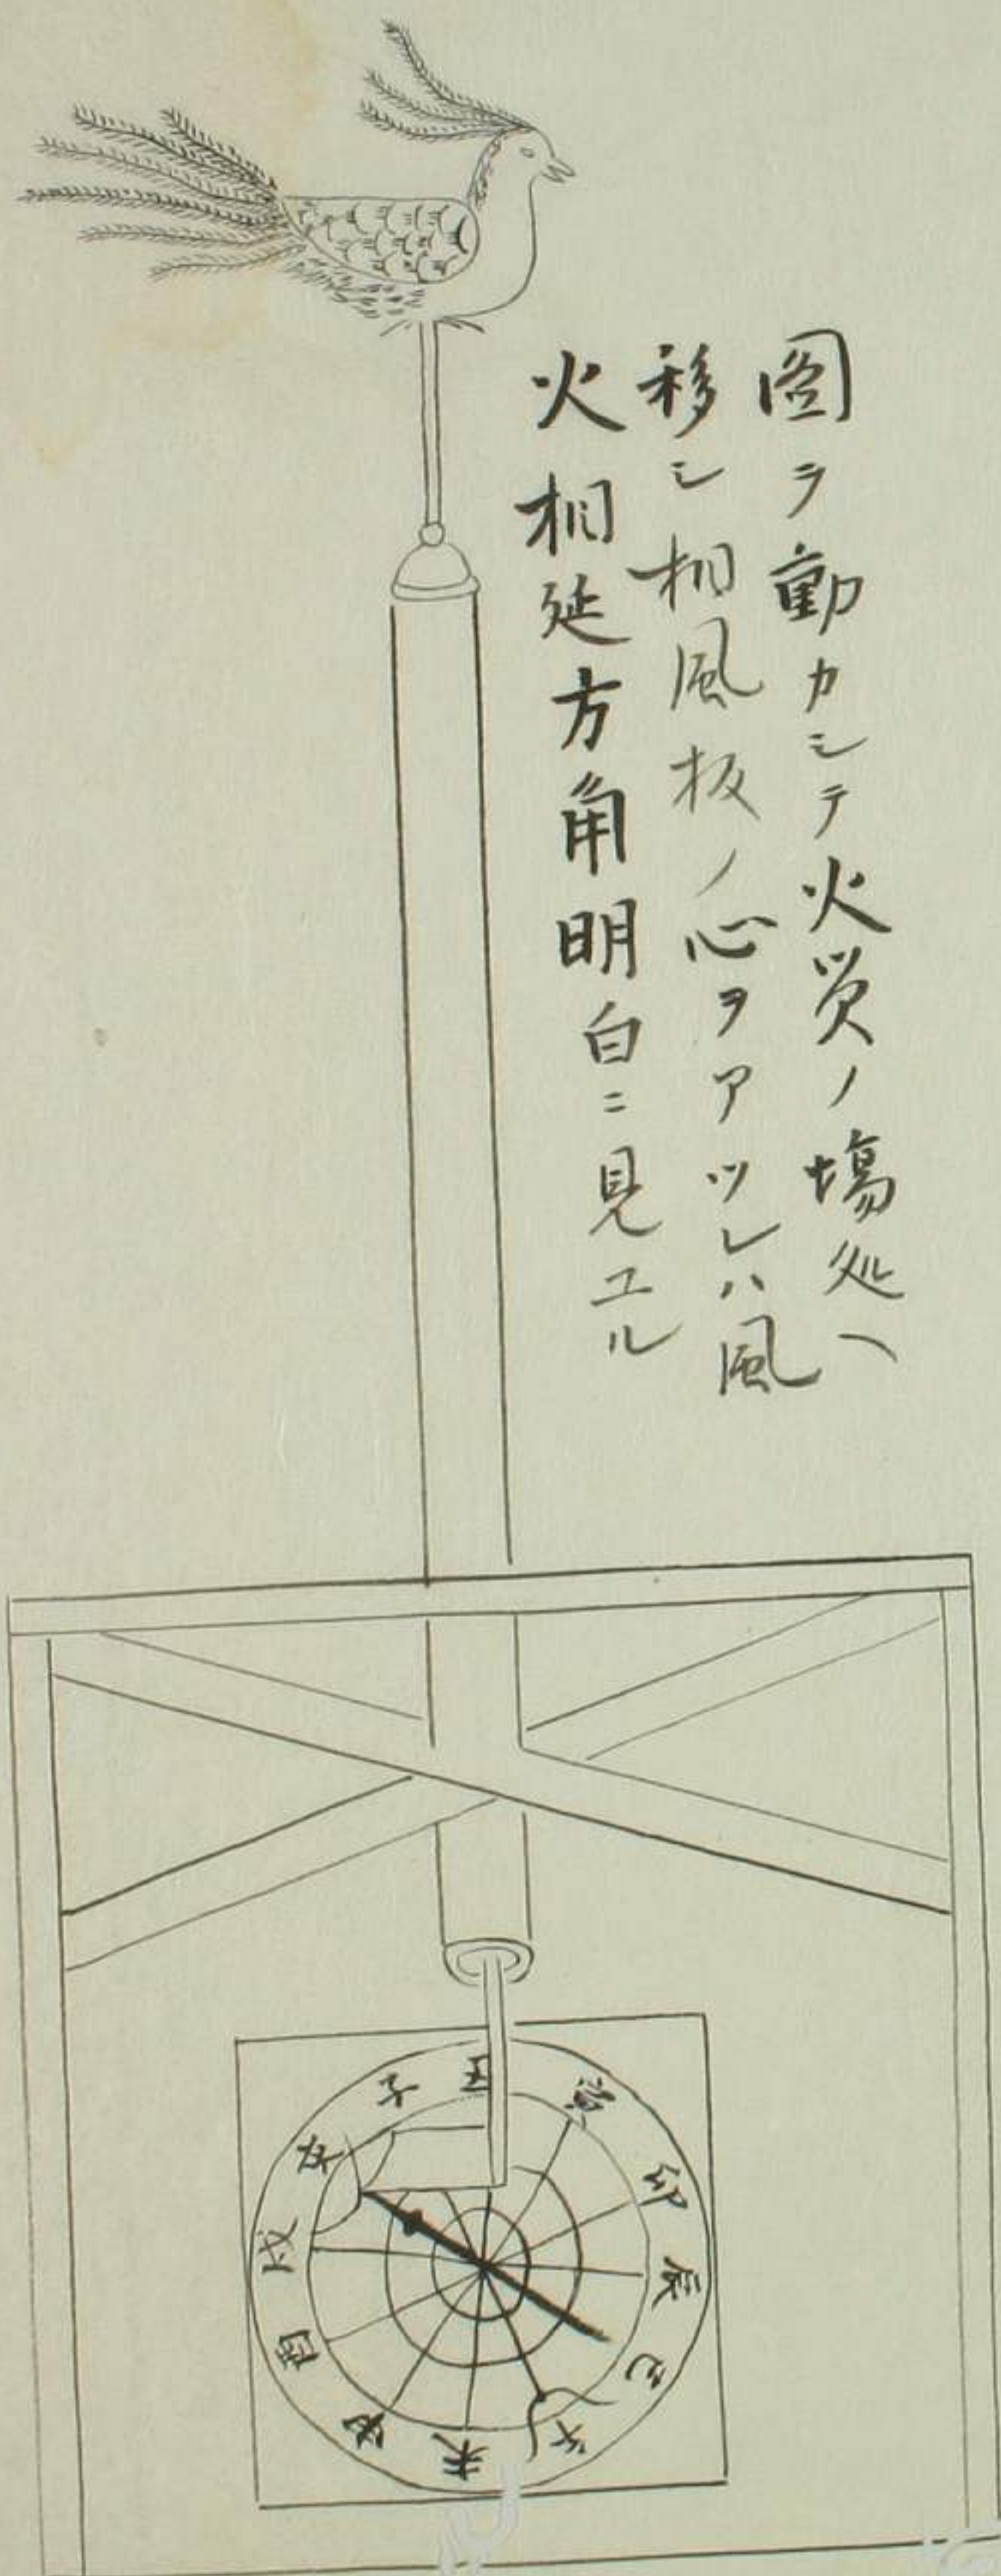 圖ヲ動カシテ火災ノ場処ヘ
移シ相風板ノ心ヲアツレハ風
火相延方角明白ニ見エル
子
丑
寅
卯
辰
巳
午
未
申
酉
戌
亥